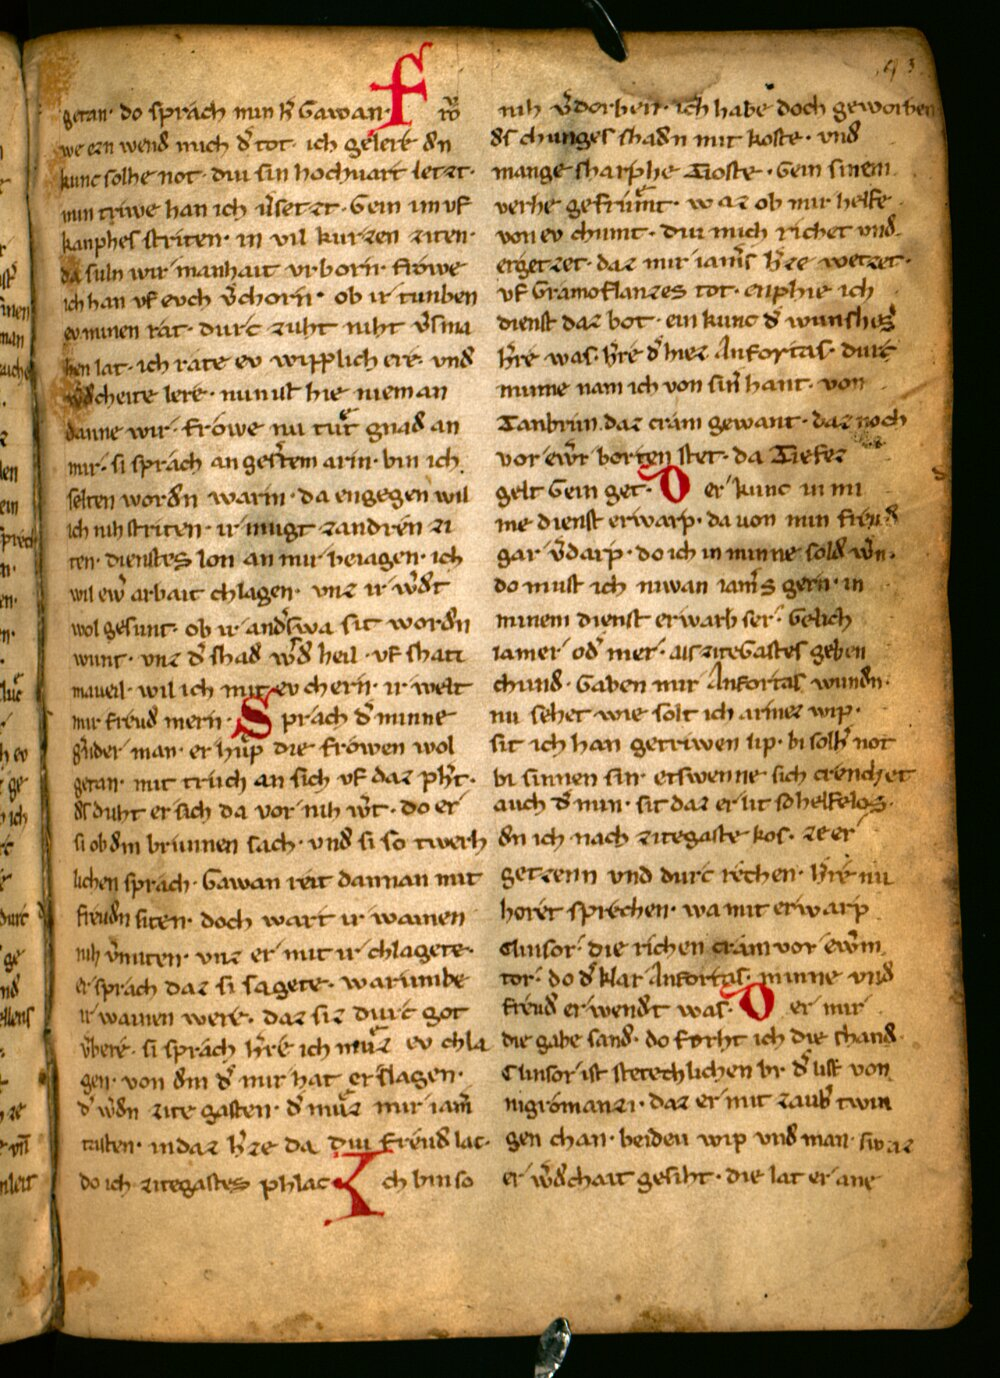 43
getan· do sprach min h̄ Gawan· F rŏ
we ezn wend mich d̄ tot· ich gelere dn
kunc solhe not· diu sin hochuart letzt·
min triwe han ich v̄setzt· Gein im vf
kanphes striten· in vil kurzen ziten·
da suln wir manhait vrborn· frowe
ich han vf evch v̄chorn· ob ir tunben
ev minen rat· durc zuht niht v̄sma
hen lat· ich rate ev wipplich ere· vnd
w̄dcheite lere· nun ist hie nieman
danne wir· frowe nu tůt gnad an
mir· si sprach an gest̄em arm· bin ich
selten wordn warm· da engegen wil
ich nih striten· ir mugt zandren zi
ten· dienstes lon an mir beiagen· ich
wil ew̄ arbait chlagen· vnz ir w̄dt
wol gesunt· ob ir and̄swa sit wordn
wunt· vnz d̄ shad w̄d heil· vf shatt
maueil· wil ich mit ev chern· ir welt
mir freud mern· S prach d̄ minne
gn̄der man· er hůp die frowen wol
getan· mit truch an sich vf daz ph̄t·
ds duht er sich da vor nih w̄t· do er
si ob dm brunnen sach· vnd si so twerh
lichen sprach· Gawan reit dannan mit
freudn siten· doch wart ir wainen
nih v̄miten· vnz er mit ir chlagete·
er sprach daz si sagete· warumbe
ir wainen were· daz siz durc got
v̄bere· si sprach h̄re ich můz ev chla
gen· von dm d̄ mir hat erslagen·
d̄ w̄dn zite gasten· d̄ můz mir iam̄
tasten· indaz h̄ze da diu freud lac·
do ich zitegastes phlac· I ch bin so
nih v̄dorben· ich habe doch geworben
ds chunges shadn mit koste· vnd
mange sharphe Tioste· Gein sinem
verhe gefrůmt· waz ob mir helfe
von ev chumt· diu mich richet vnd
ergetzet· daz mir iam̄s h̄ze wetzet·
vf Gramoflanzes tot· enphie ich
dienst daz bot· ein kunc d̄ wunshes
h̄re was· h̄re d̄ hiez Anfortas· durc
minne nam ich von sin̄ hant· von
Tanbrun daz cram gewant· daz noch
vor ew̄r borten stet· da Tiefez
gelt Gein get· D er kunc in mi
me dienst erwarp· da von min freud
gar v̄darp· do ich in minne sold w̄n·
do must ich niwan iam̄s gern· in
minem dienst erwarb ser· Gelich
iamer od̄ mer· als zite Gastes geben
chund· Gaben mir Anfortas wundn·
nu sehet wie solt ich armez wip·
sit ich han getriwen lip· bi solh̄ not
bi sinnen sin· etswenne sich crenchet
auch d̄ min· sit daz er lit so helfelos·
dn ich nach zitegaste kos· ze er
getzenn vnd durc rechen· h̄re nu
horet sprechen· wa mit erwarp
Clinsor· die richen cram vor ew̄m
tor· do d̄ klar Anfortas· minne vnd
freud erwendt was· D er mir
die gabe sand· do forht ich die shand·
Clinsor ist stetechlichen br̄ d̄ list von
nigromanzi· daz er mit zaub̄ twin
gen chan· beideu wip vnd man· swaz
er w̄dchait gesiht· die lat er ane